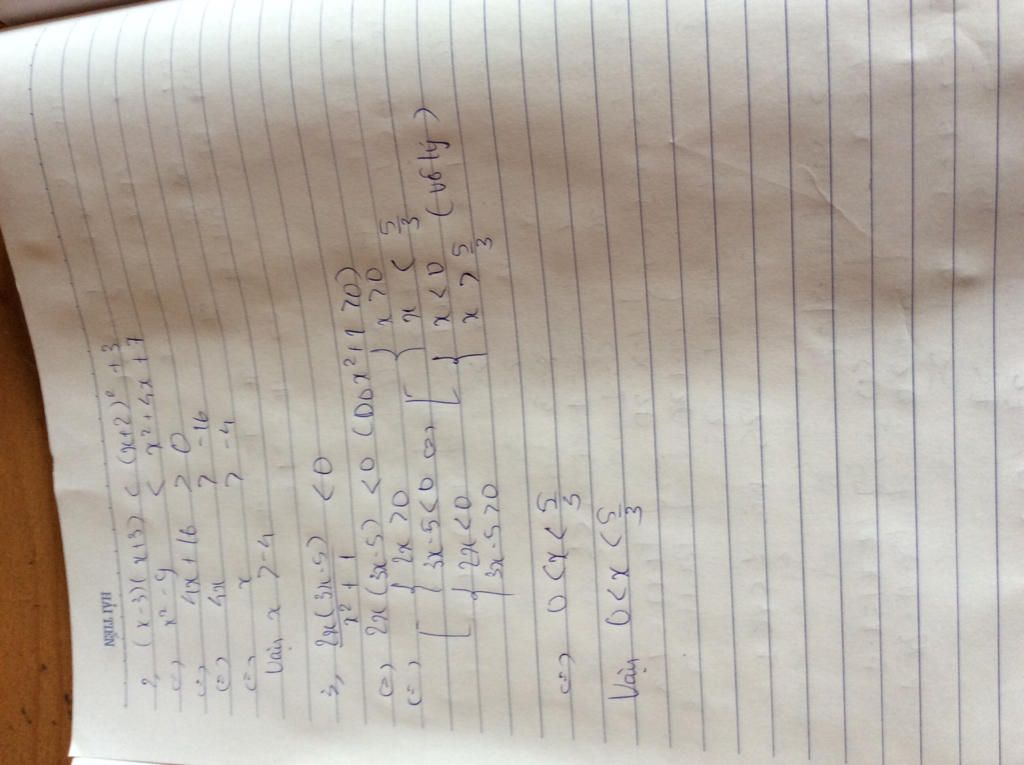 HẢI TIẾN
2, (x-3)(x+3) < (x+2)² +3
(=) x²-9 < x²+4x+7
(=) 4x+16 > 0
(=) 4x > -16
(=) x > -4
Vậy x > -4
3, 2x(3x-5) / x²+1 < 0
(=) 2x(3x-5) <0 (Do x²+1 >0)
(=) [ { 2x >0 3x-5<0 (=) [ { x >0 x < 5/3
{ 2x<0 3x-5>0 { x<0 x > 5/3 (vô lý)
(=) 0 < x < 5/3
Vậy 0 < x < 5/3